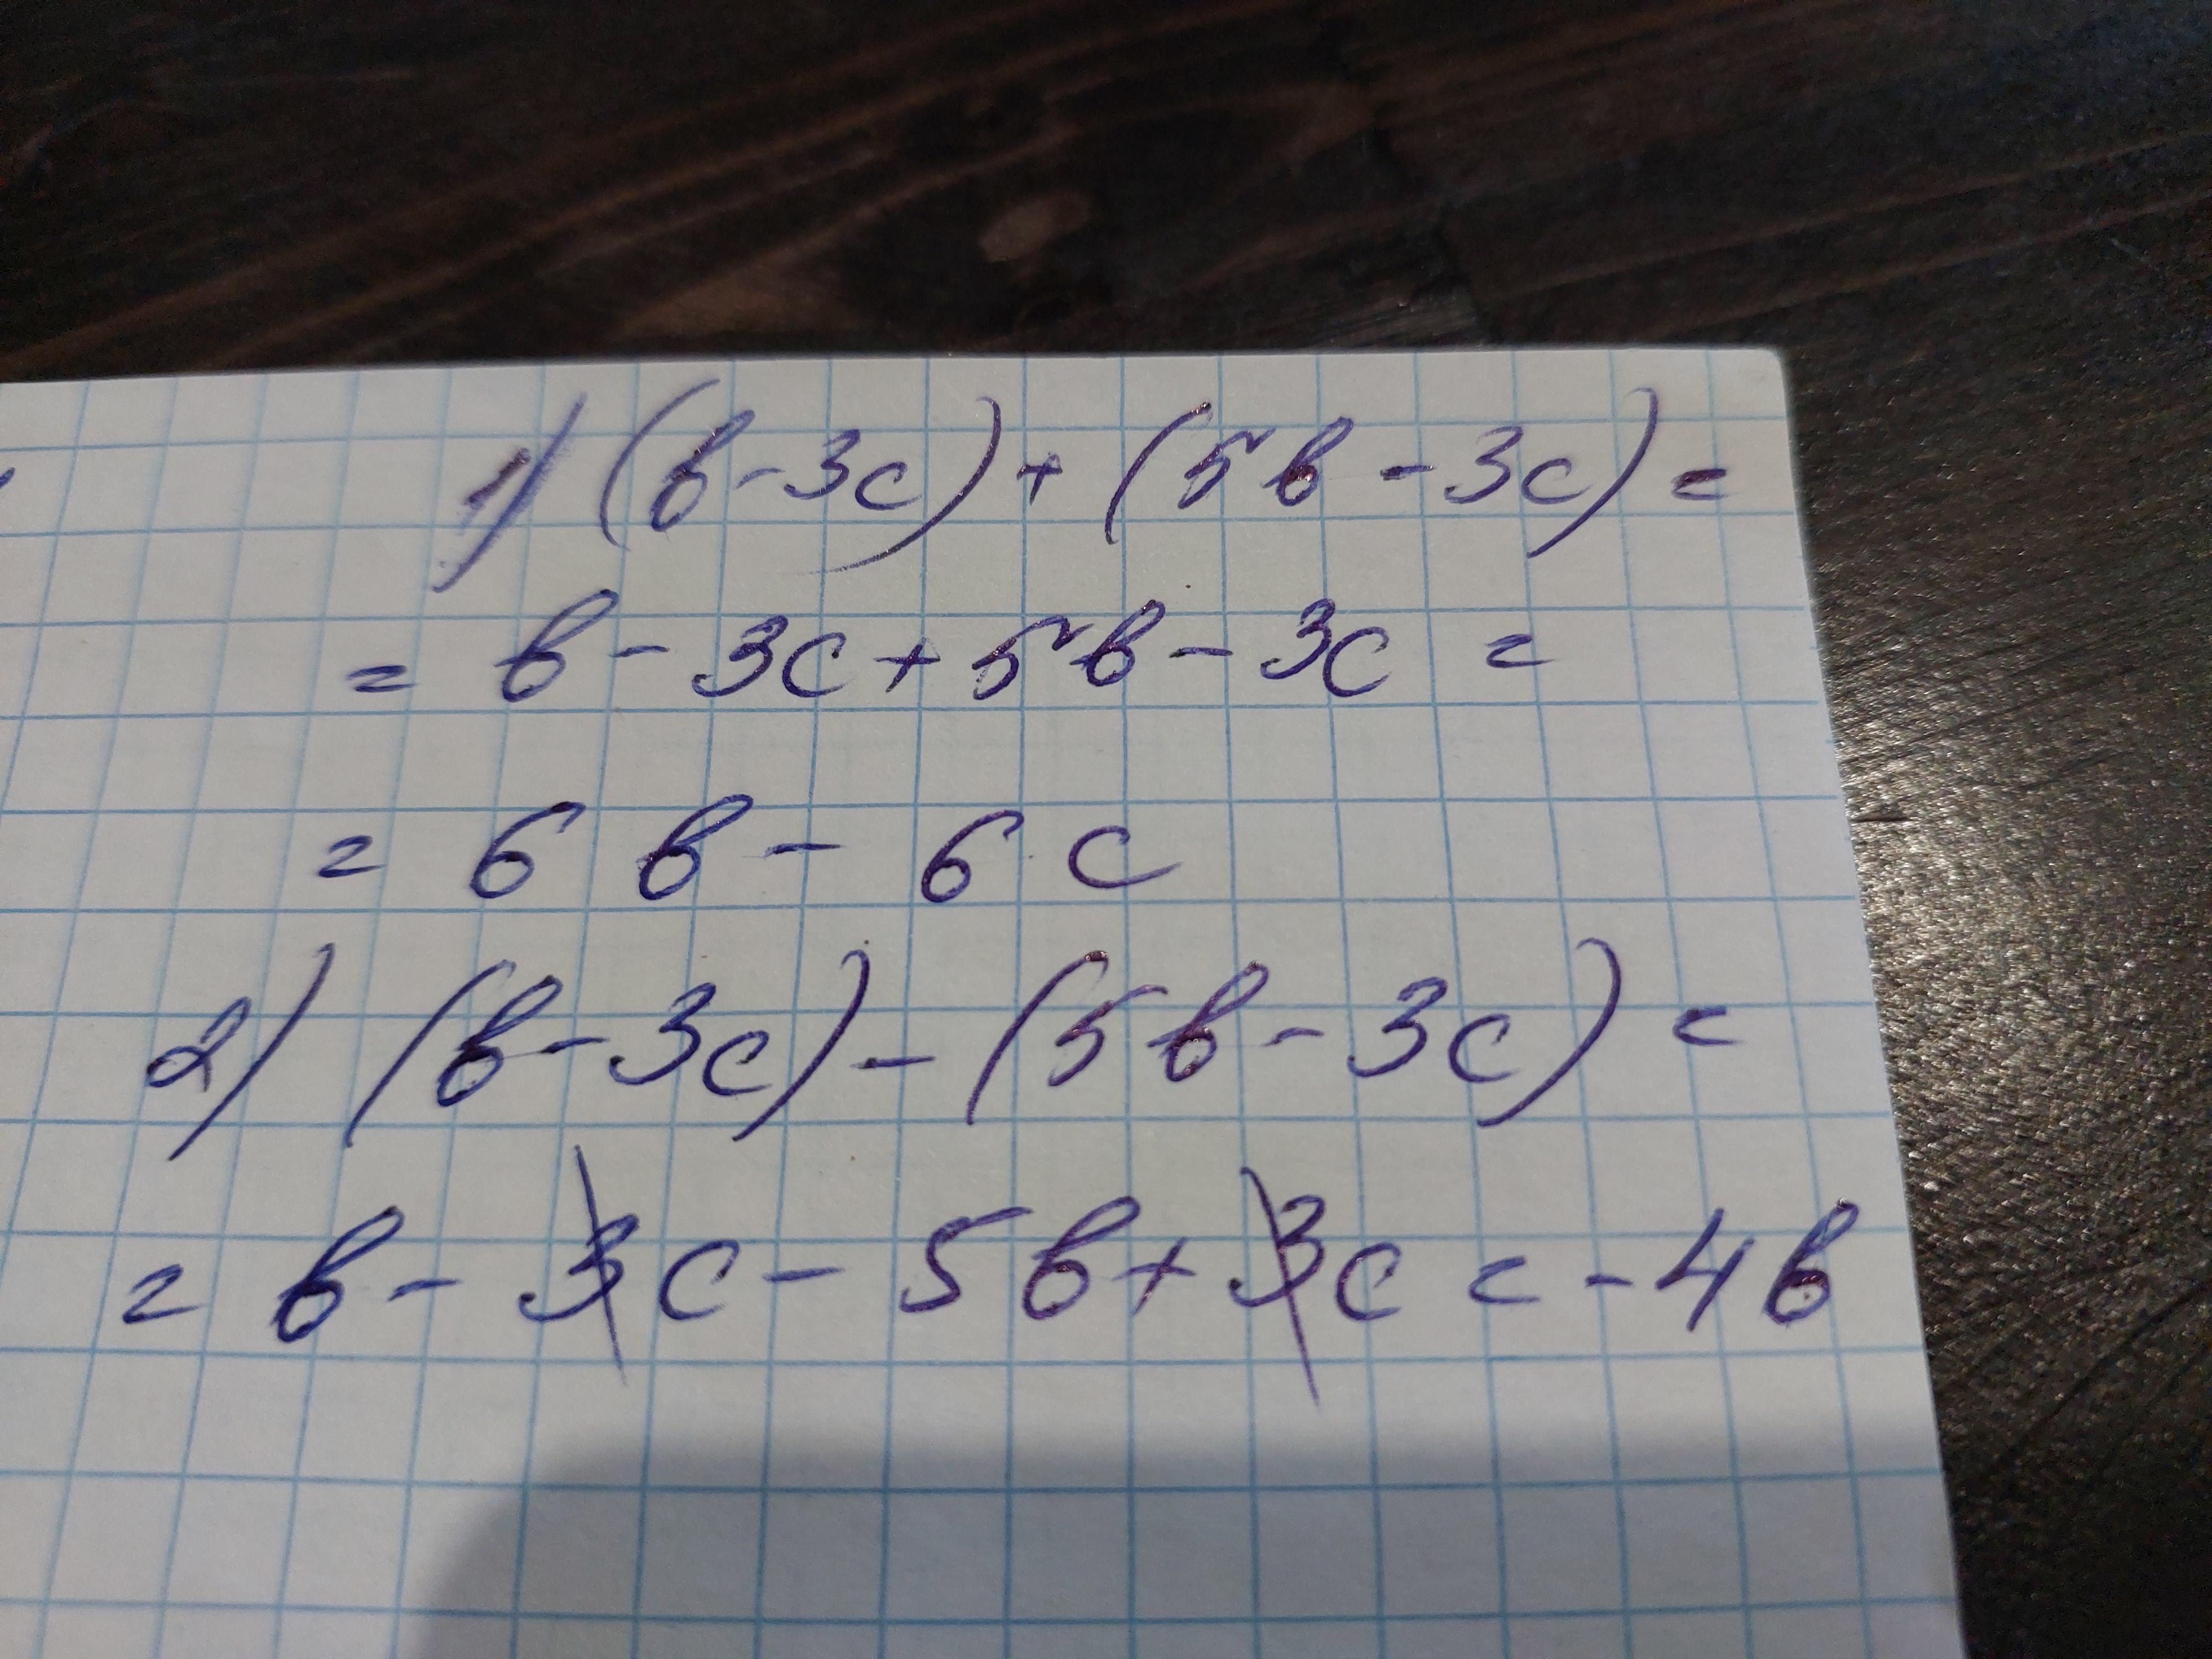 1) (b-3c)+(5b-3c)=
= b-3c+5b-3c =
= 6b-6c
2) (b-3c)-(5b-3c)=
= b-3c-5b+3c=-4b